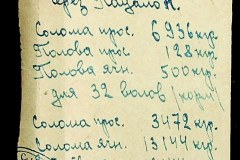 через Кацалоп.
Солома прос. 6936 кгр.
Полова прос 128 кгр.
Полова ячн. 500 кгр.
для 32 волов (корм)
Солома прос. 3472 кгр.
Солома ячн. 13144 кгр.